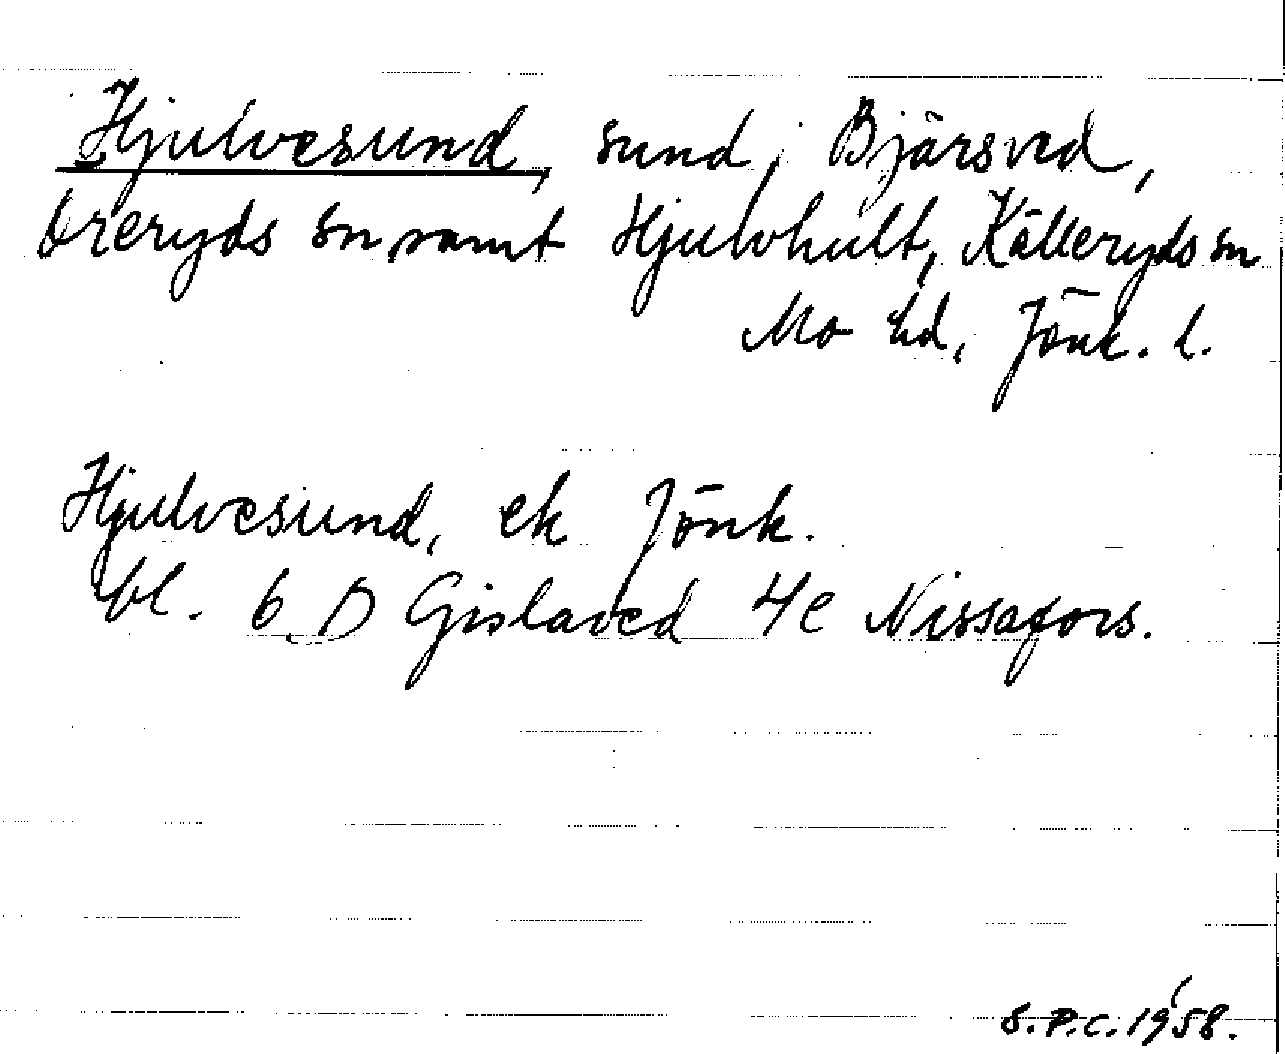 Hjulvesund, sund i Bjärsved,
Öreryds sn samt Hjulvhult, Källeryds sn
Mo hd, Jönk. l.
Hjulvesund, ek Jönk.
bl. 6 D Gislaved 4e Nissafors.
S.P.C. 1958.